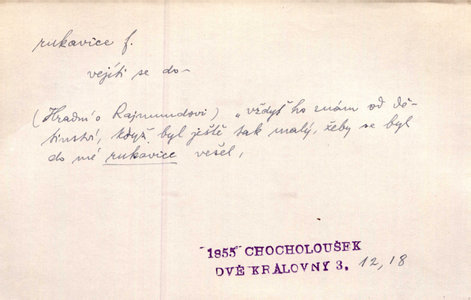 rukavice f.
vejíti se do-
(Hradní o Rajmundovi) „vždyť ho znám od dě-
tinství, když byl ještě tak malý, žeby se byl
do mé rukavice vešel,
1855 CHOCHOLOUŠEK
DVĚ KRÁLOVNY 3, 12, 18